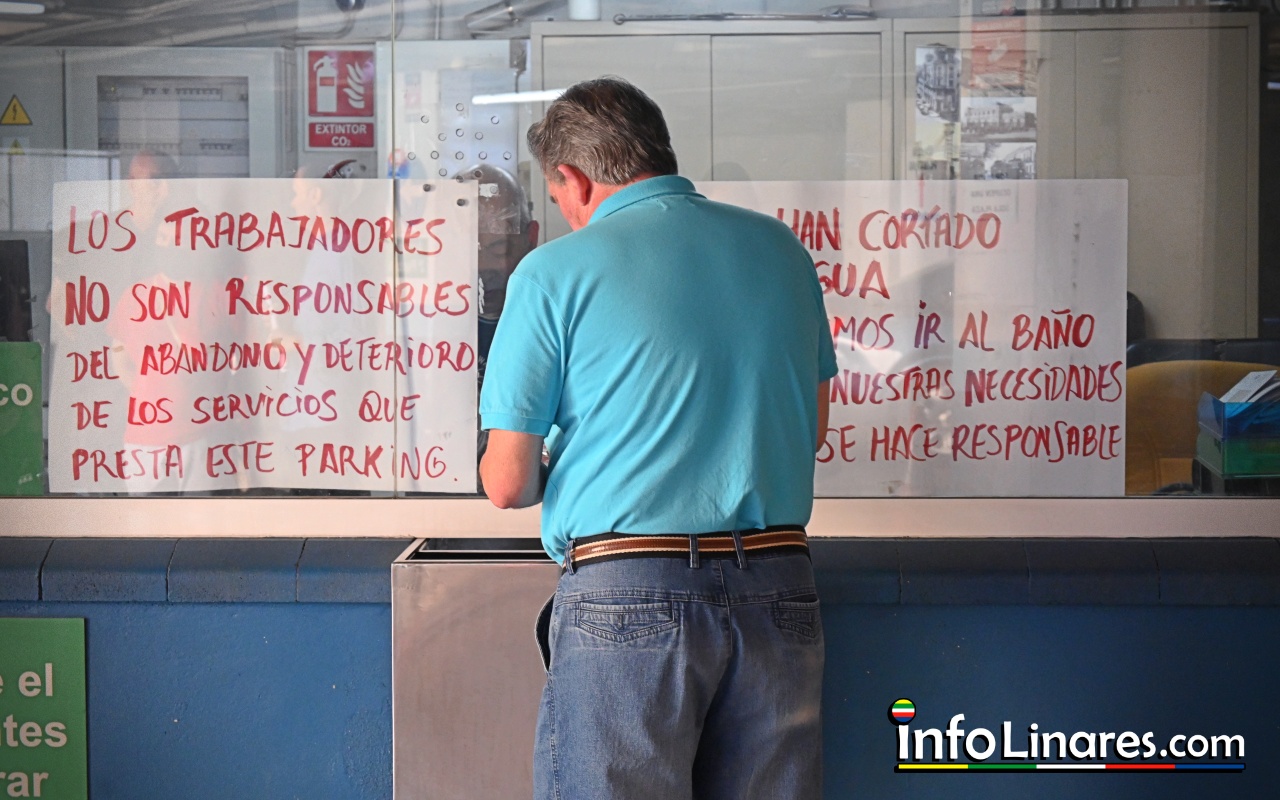 EXTINTOR
CO₂
LOS TRABAJADORES
NO SON RESPONSABLES
DEL ABANDONO Y DETERIORO
DE LOS SERVICIOS QUE
PRESTA ESTE PARKING.
HAN CORTADO
GUA
MOS IR AL BAÑO
NUESTRAS NECESIDADES
SE HACE RESPONSABLE
co
e el
ntes
rar
infoLinares.com